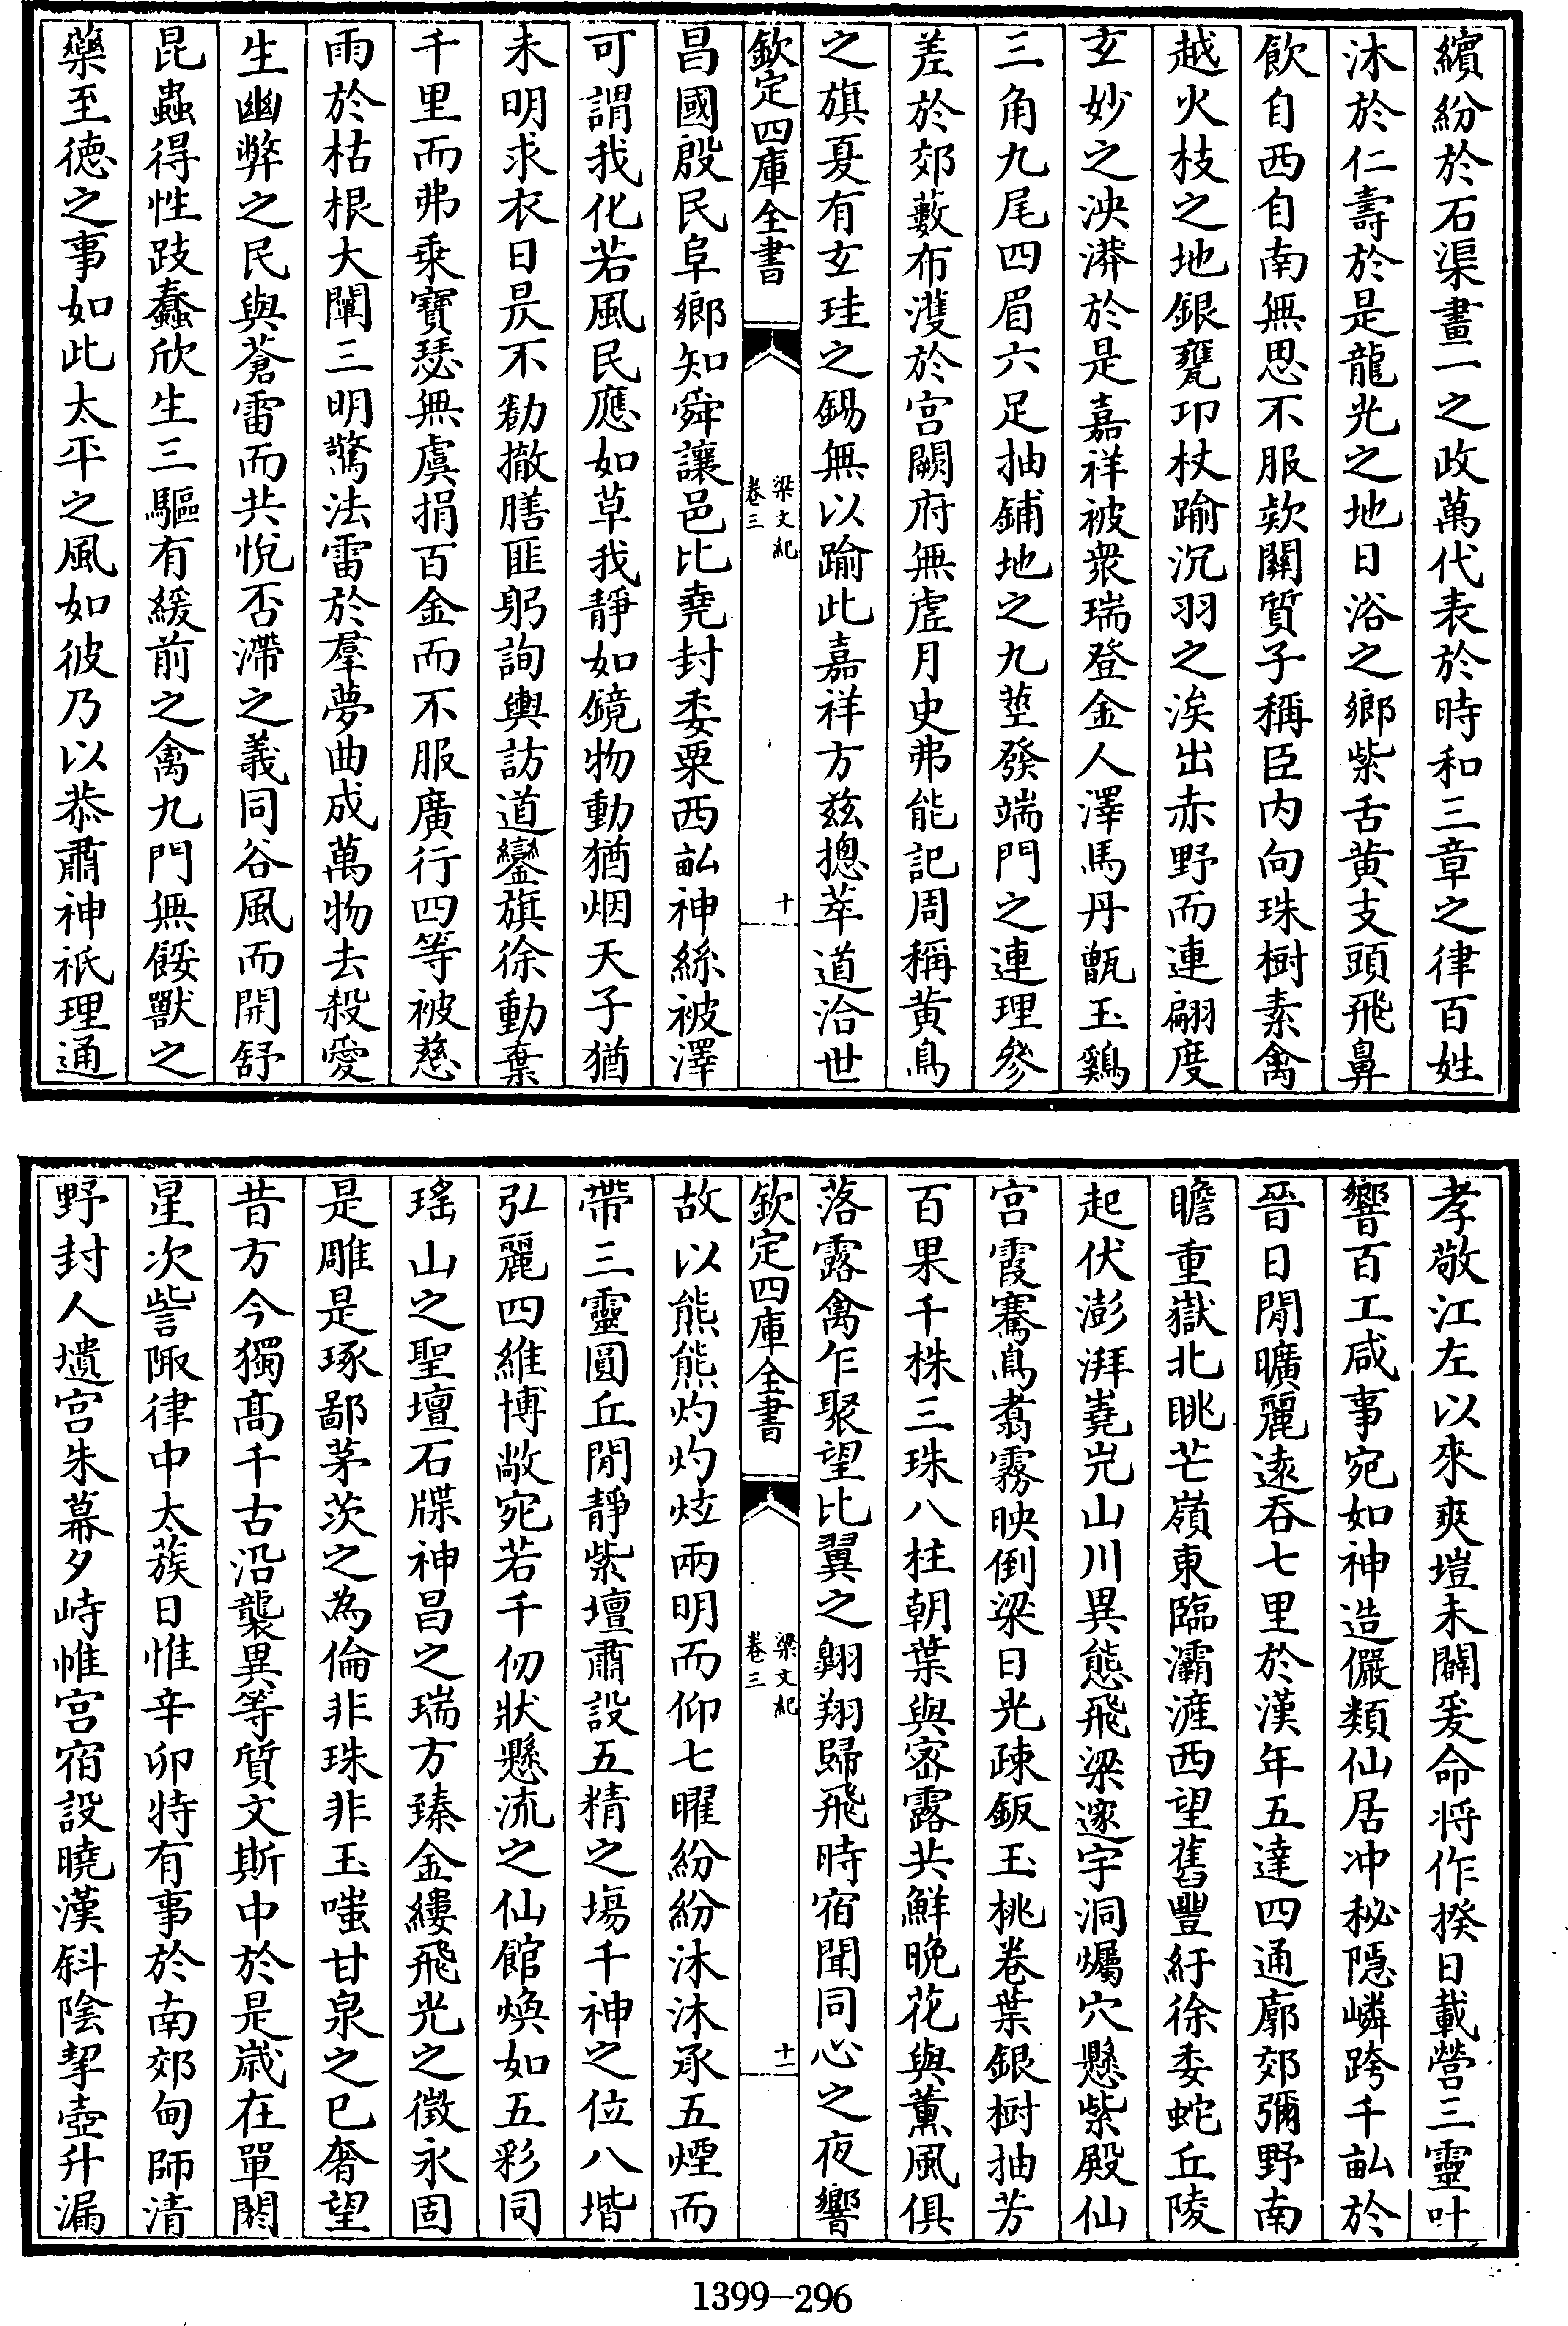 繽紛於石渠畫一之政萬代表於時和三章之律百姓
沐於仁壽於是龍光之地日浴之鄉紫舌黄支頭飛鼻
飲自西自南無思不服欵關質子稱臣内向珠樹素禽
越火枝之地銀甕卭杖踰沉羽之涘出赤野而連翩度
玄妙之泱漭於是嘉祥被衆瑞登金人澤馬丹甑玉鷄
三角九尾四眉六足抽鋪地之九莖發端門之連理參
差於郊藪布濩於宫闕府無虚月史弗能記周稱黄鳥
之旗夏有玄珪之錫無以踰此嘉祥方兹摠萃道洽世
欽定四庫全書
梁文紀
卷三
十
昌國殷民阜鄉知舜讓邑比堯封委粟西畆神絲被澤
可謂我化若風民應如草我靜如鏡物動猶烟天子猶
未明求衣日昃不勌撤膳匪躬詢輿訪道鑾旗徐動棄
千里而弗乗寶瑟無虞捐百金而不服廣行四等被慈
雨於枯根大闡三明驚法雷於羣夢曲成萬物去殺愛
生幽弊之民與蒼雷而共悦否滯之義同谷風而開舒
昆蟲得性跂蠢欣生三驅有緩前之禽九門無餧獸之
藥至徳之事如此太平之風如彼乃以恭肅神祇理通
孝敬江左以來爽塏未闢爰命将作揆日載營三靈叶
響百工咸事宛如神造儼類仙居冲秘隱嶙跨千畆於
晉日閒曠麗遠吞七里於漢年五達四通廓郊彌野南
瞻重嶽北眺芒嶺東臨灞滻西望舊豐紆徐委蛇丘陵
起伏澎湃嶤岏山川異態飛梁邃宇洞爥穴懸紫殿仙
宫霞騫鳥翥霧映倒梁日光疎鈑玉桃卷葉銀樹抽芳
百果千株三珠八柱朝葉與宻露共鮮晚花與薫風俱
落露禽乍聚望比翼之翺翔歸飛時宿聞同心之夜響
欽定四庫全書
梁文紀
卷三
十一
故以熊熊灼灼炫兩明而仰七曜紛紛沐沐承五煙而
帶三靈圓丘閒靜紫壇肅設五精之塲千神之位八堦
弘麗四維博敞宛若千仞狀懸流之仙館煥如五彩同
瑤山之聖壇石牒神昌之瑞方臻金縷飛光之徴永固
是雕是琢鄙茅茨之為倫非珠非玉嗤甘泉之已奢望
昔方今獨髙千古沿襲異等質文斯中於是歳在單閼
星次訾陬律中太蔟日惟辛卯特有事於南郊甸師清
野封人壝宫朱幕夕峙帷宫宿設曉漢斜陰挈壺升漏
1399-296